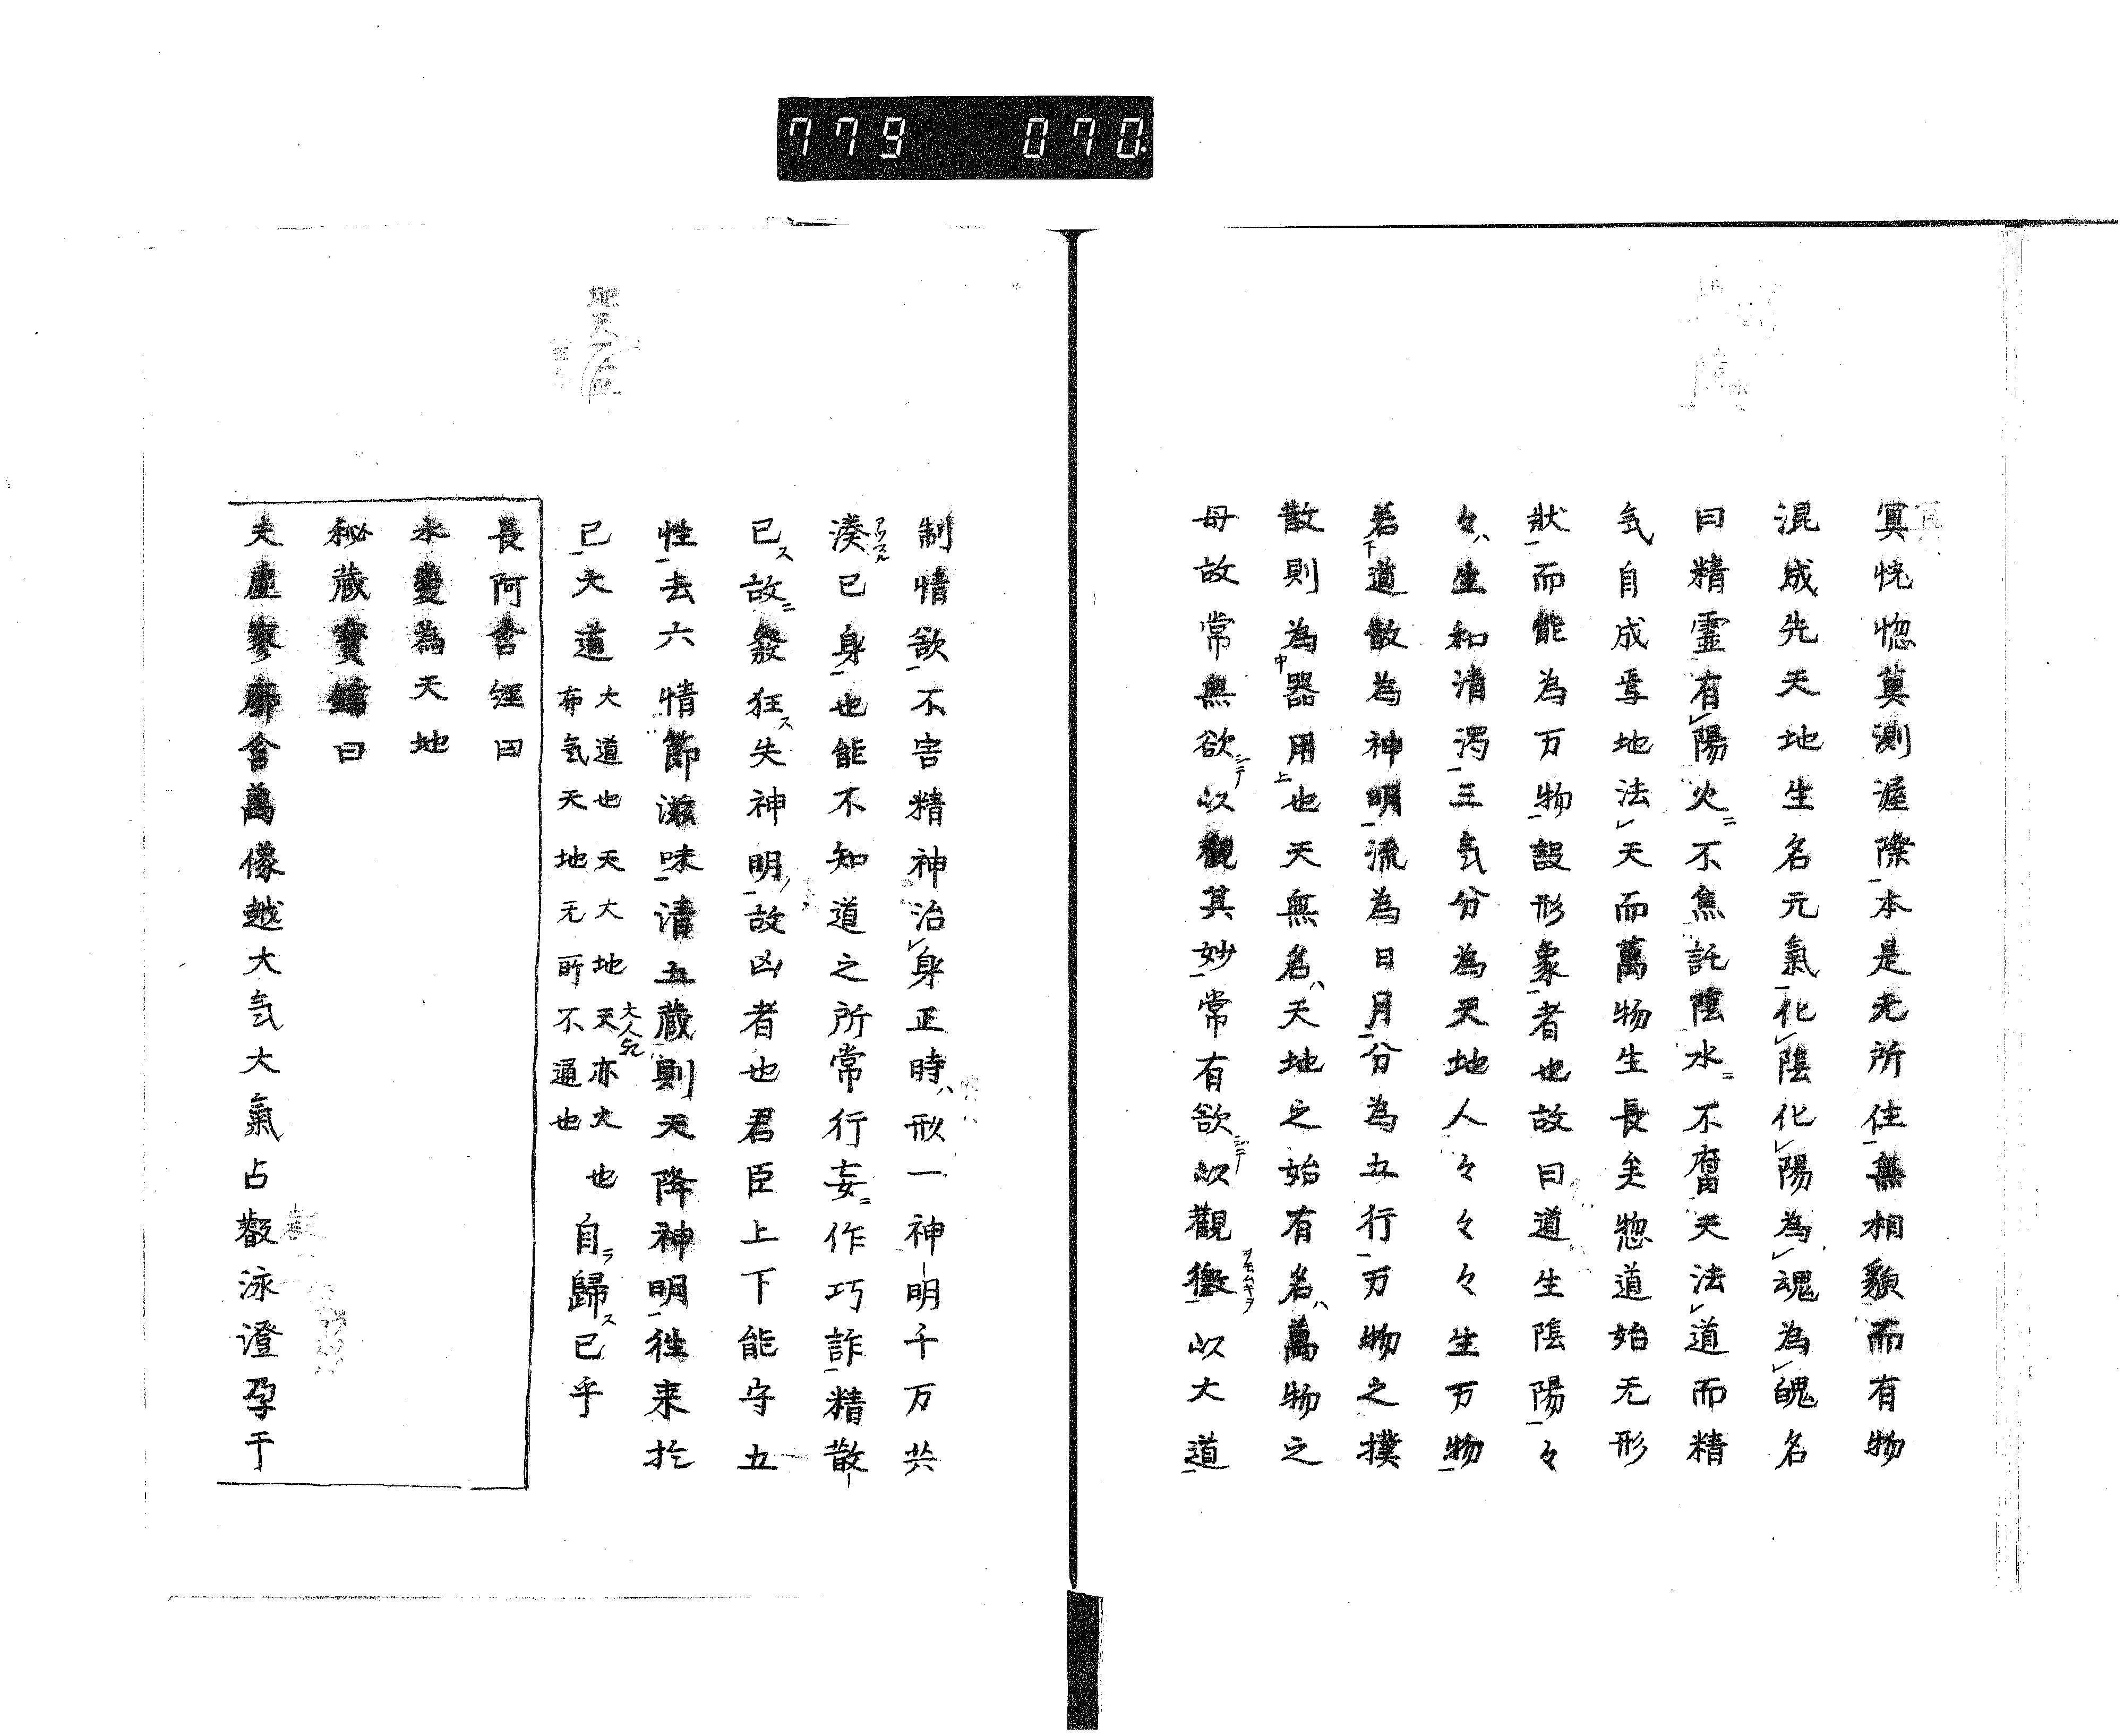 779 070
冥恍惚莫測渥際本是无所住無相貌而有物
混成先天地生名元氣化陰化陽為魂為魄名
曰精霊有陽火不焦託陰水不腐天法道而精
気自成焉地法天而萬物生長矣惣道始无形
狀而能為万物設形象者也故曰道生陰陽々
々生和清濁三気分為天地人々々々生万物
若道散為神明流為日月分為五行万物之撲
散則為器用也天無名天地之始有名萬物之
母故常無欲以觀其妙常有欲以觀徼以大道
制情欲不害精神治身正時形一神明千万共
湊已身也能不知道之所常行妄作巧詐精散
已故發狂失神明故凶者也君臣上下能守五
性去六情節滋味清五蔵則天降神明往来於
已大道
大道也天大地天亦大也
布気天地无所不通也
自歸已乎
長阿含経曰
水變為天地
秘蔵寳鑰曰
夫虚寥廓含萬像越大気大氣占㲉泳澄孕于